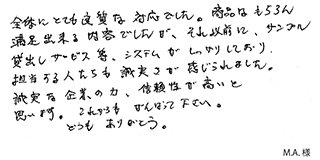 全体にとても良質な対応でした。商品はもちろん
満足出来る内容でしたが、それ以前に、サンプル
貸出しサービス等、システムがしっかりしており、
担当する人たちも誠実さが感じられました。
誠実な企業の力、信頼性が高いと
思います。これからもがんばって下さい。
どうもありがとう。
M.A. 様